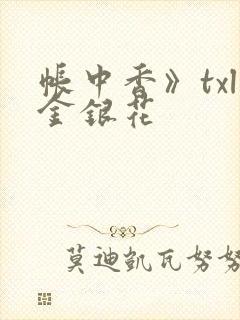 帳中香》txl
金銀花
莫迪凱瓦努努